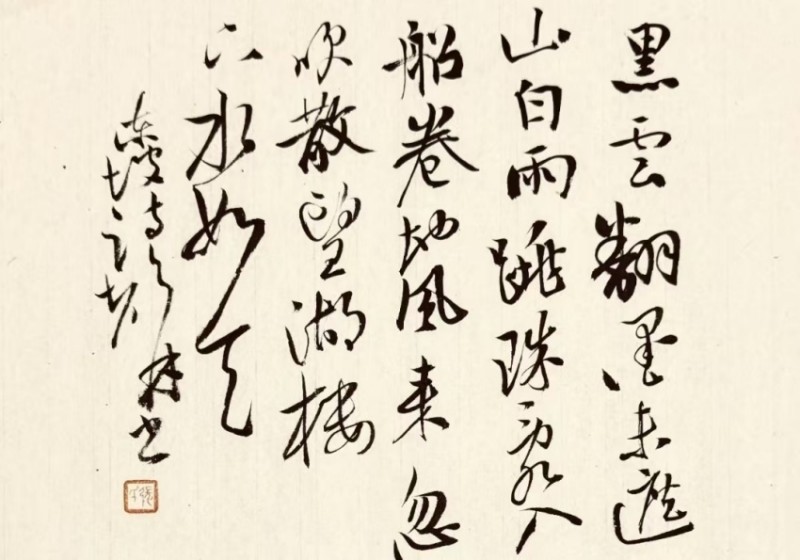 黑雲翻墨未遮
山白雨跳珠亂入
船卷地風來忽
吹散望湖樓
下水如天
東坡